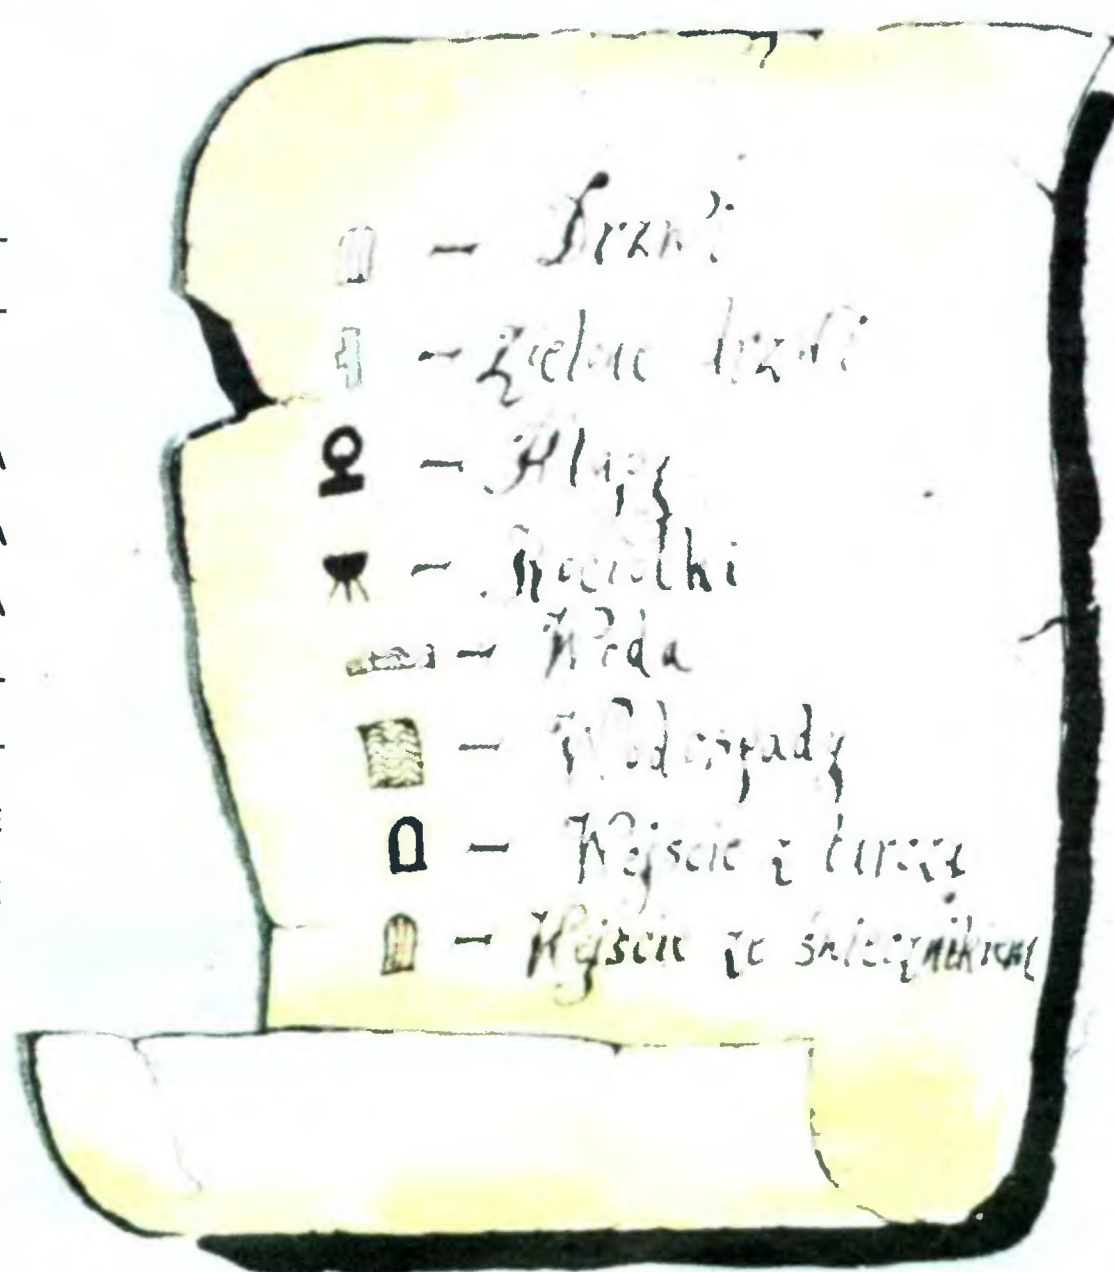 – Drzwi
– Zielone drzwi
– Klapy
– Kociołki
– Woda
– Wodospady
– Wejscie z tarczą
– Wejscie ze świecznikiem